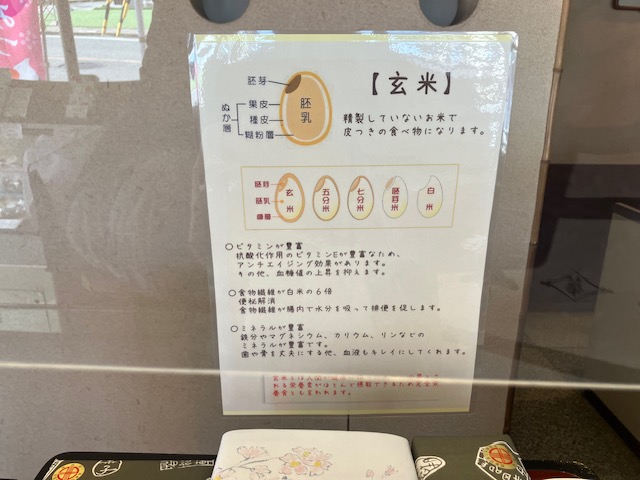 【玄米】
胚芽
果皮
種皮
糊粉層
ぬか層
胚乳
精製していないお米で
皮つきの食べ物になります。
胚芽
胚乳
玄米
五分米
七分米
胚芽米
白米
○ビタミンが豊富
抗酸化作用のビタミンEが豊富なため、
アンチエイジング効果があります。
その他、血糖値の上昇を抑えます。
○食物繊維が白米の6倍
便秘解消
食物繊維が腸内で水分を吸って排便を促します。
○ミネラルが豊富
鉄分やマグネシウム、カリウム、リンなどの
ミネラルが豊富です。
歯や骨を丈夫にする他、血液もキレイにしてくれます。
れる栄養素がほとんど摂取できるため完全栄
養食とも言われます。